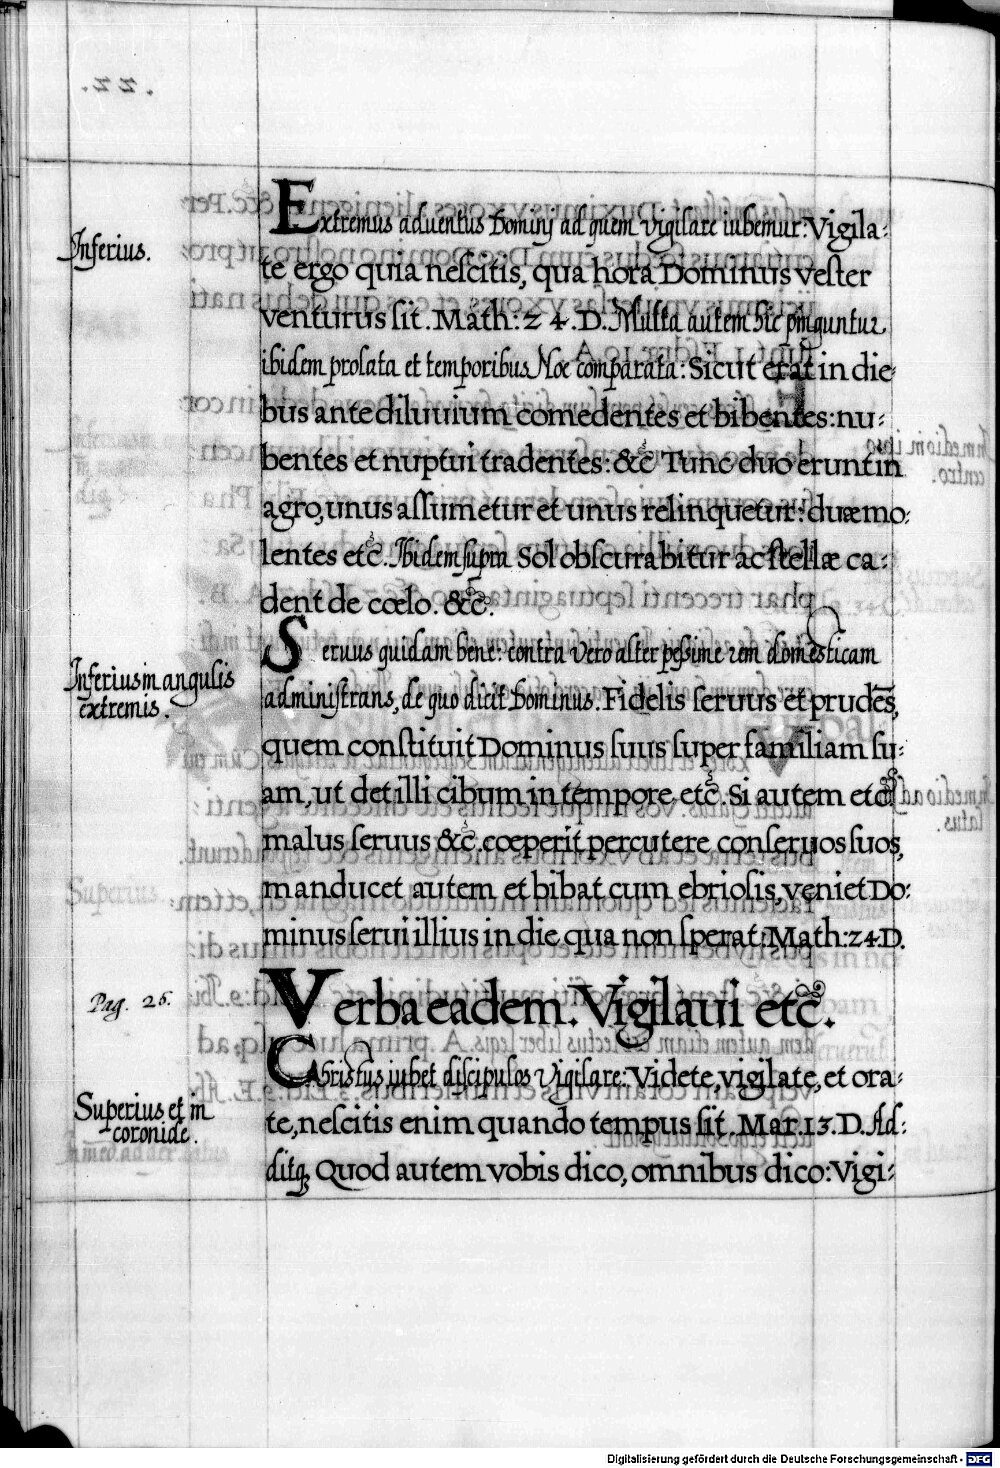 Inferius.
Extremus aduentus Dominj ad quem vigilare iubemur: Vigila-
te ergo quia nescitis, qua hora Dominus vester
venturus sit. Math: 24. D. Multa autem hic pinguntur
ibidem prolata et temporibus Noe comparata: Sicut erat in die-
bus ante diluuium comedentes et bibentes: nu-
bentes et nuptui tradentes: &c Tunc duo erunt in
agro, unus assumetur et unus relinquetur: duæ mo-
lentes etc. Ibidem supra Sol obscurabitur ac stellæ ca-
dent de cœlo. &c.
Inferius in angulis
extremis.
Seruus quidam bene: contra vero alter pessime rem domesticam
administrans, de quo dicit Dominus. Fidelis seruus et prudẽs,
quem constituit Dominus suus super familiam su-
am, ut det illi cibum in tempore etc. Si autem etc
malus seruus &c. cœperit percutere conseruos suos,
manducet autem et bibat cum ebriosis, veniet Do-
minus serui illius in die qua non sperat: Math: 24. D.
Pag. 26.
Verba eadem. Vigilaui etc.
Superius et in
coronide.
Christus iubet discipulos Vigilare: Videte, vigilate, et ora-
te, nescitis enim quando tempus sit. Mar. 13. D. Ad-
ditq; Quod autem vobis dico, omnibus dico: Vigi-
Digitalisierung gefördert durch die Deutsche Forschungsgemeinschaft - DFG